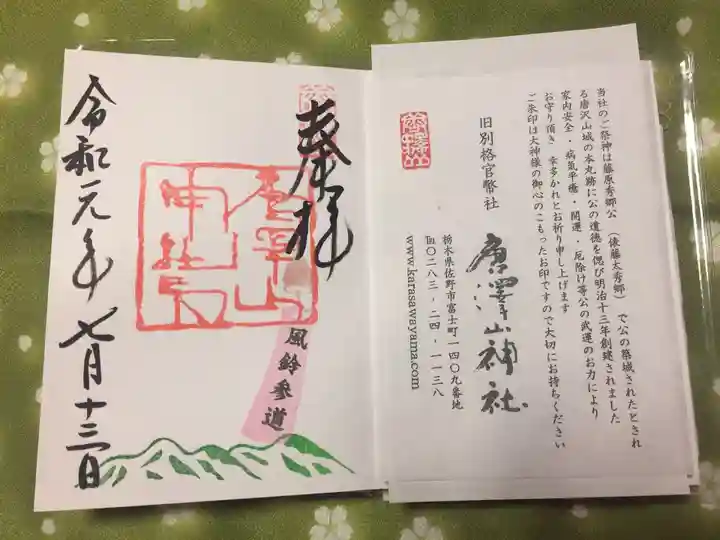 奉拝
風鈴参道
令和元年七月十三日
当社のご祭神は藤原秀郷公(俵藤太秀郷)で公の築城されたとされ
る唐沢山城の本丸跡に公の遺徳を偲び明治十三年創建されました
家内安全・病気平癒・開運・厄除け等公の武運のお力により
お守り頂き 幸多かれとお祈り申し上げます
ご朱印は大神様の御心のこもったお印ですので大切にお持ちください
旧別格官幣社
唐澤山神社
栃木県佐野市富士町一四〇九番地
℡〇二八三-二四-一一三八
www.karasawayama.com